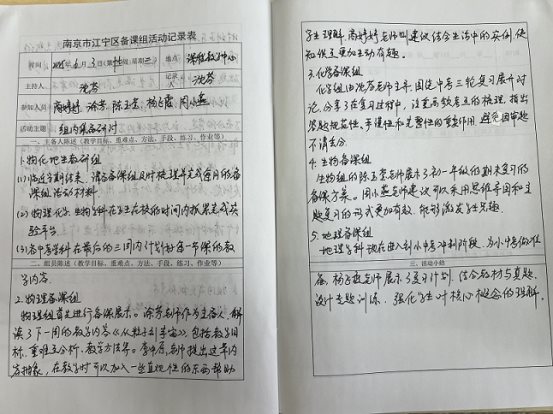 南京市江宁区备课组活动记录表
时间 2025年6月3日(第16周星期二) 地点 课程教学中心
主持人 沈芬 记录人 沈芬
参加人员 陈玉荣 杨子霞 周小燕
活动主题 组内集备研讨
一、主备人陈述(教学目标、重难点、方法、手段、练习、作业等)
1. 物化地生备研组
(1)临近学期结束,请各备课组及时梳理并完成每月的备
课组活动材料
(2)物理化学、生物学科在学生在校的时间内抓紧完成实
验平台
(3)各中考学科在最后的三周内计划好每一节课的教
二、组员陈述(教学目标、重难点、方法、手段、练习、作业等)
学内容。
2. 物理备课组
物理组首先进行备课展示。涂芳老师作为主备人,解
读了下一周的教学内容《从粒子到宇宙》,包括教学目
标、重难点分析、教学方法等。老师提出这章内
容抽象,在教学时可以加入一些直观性的东西帮助
学生理解,老师则建议结合生活中的实例,使
知识更加生动有趣。
3. 化学备课组
化学组由沈芬老师主备,围绕中考三轮复习展开讨
论,分享了在复习过程中,注重高频考点的梳理,指出
答题规范性、准确性和完整性的重要作用,避免因审题
不清丢分。
4. 生物备课组
生物组的陈玉荣老师展示了初一年级的期末复习的
备课方案。周小燕老师建议可以采用思维导图和主
题复习的形式更加有效,能够激发学生兴趣。
5. 地理备课组
地理学科现在进入到小中考冲刺阶段,为小中考做准
三、活动小结
备,杨子霞老师展示了复习计划,结合教材与真题,
设计专题训练,强化学生对核心概念的理解。